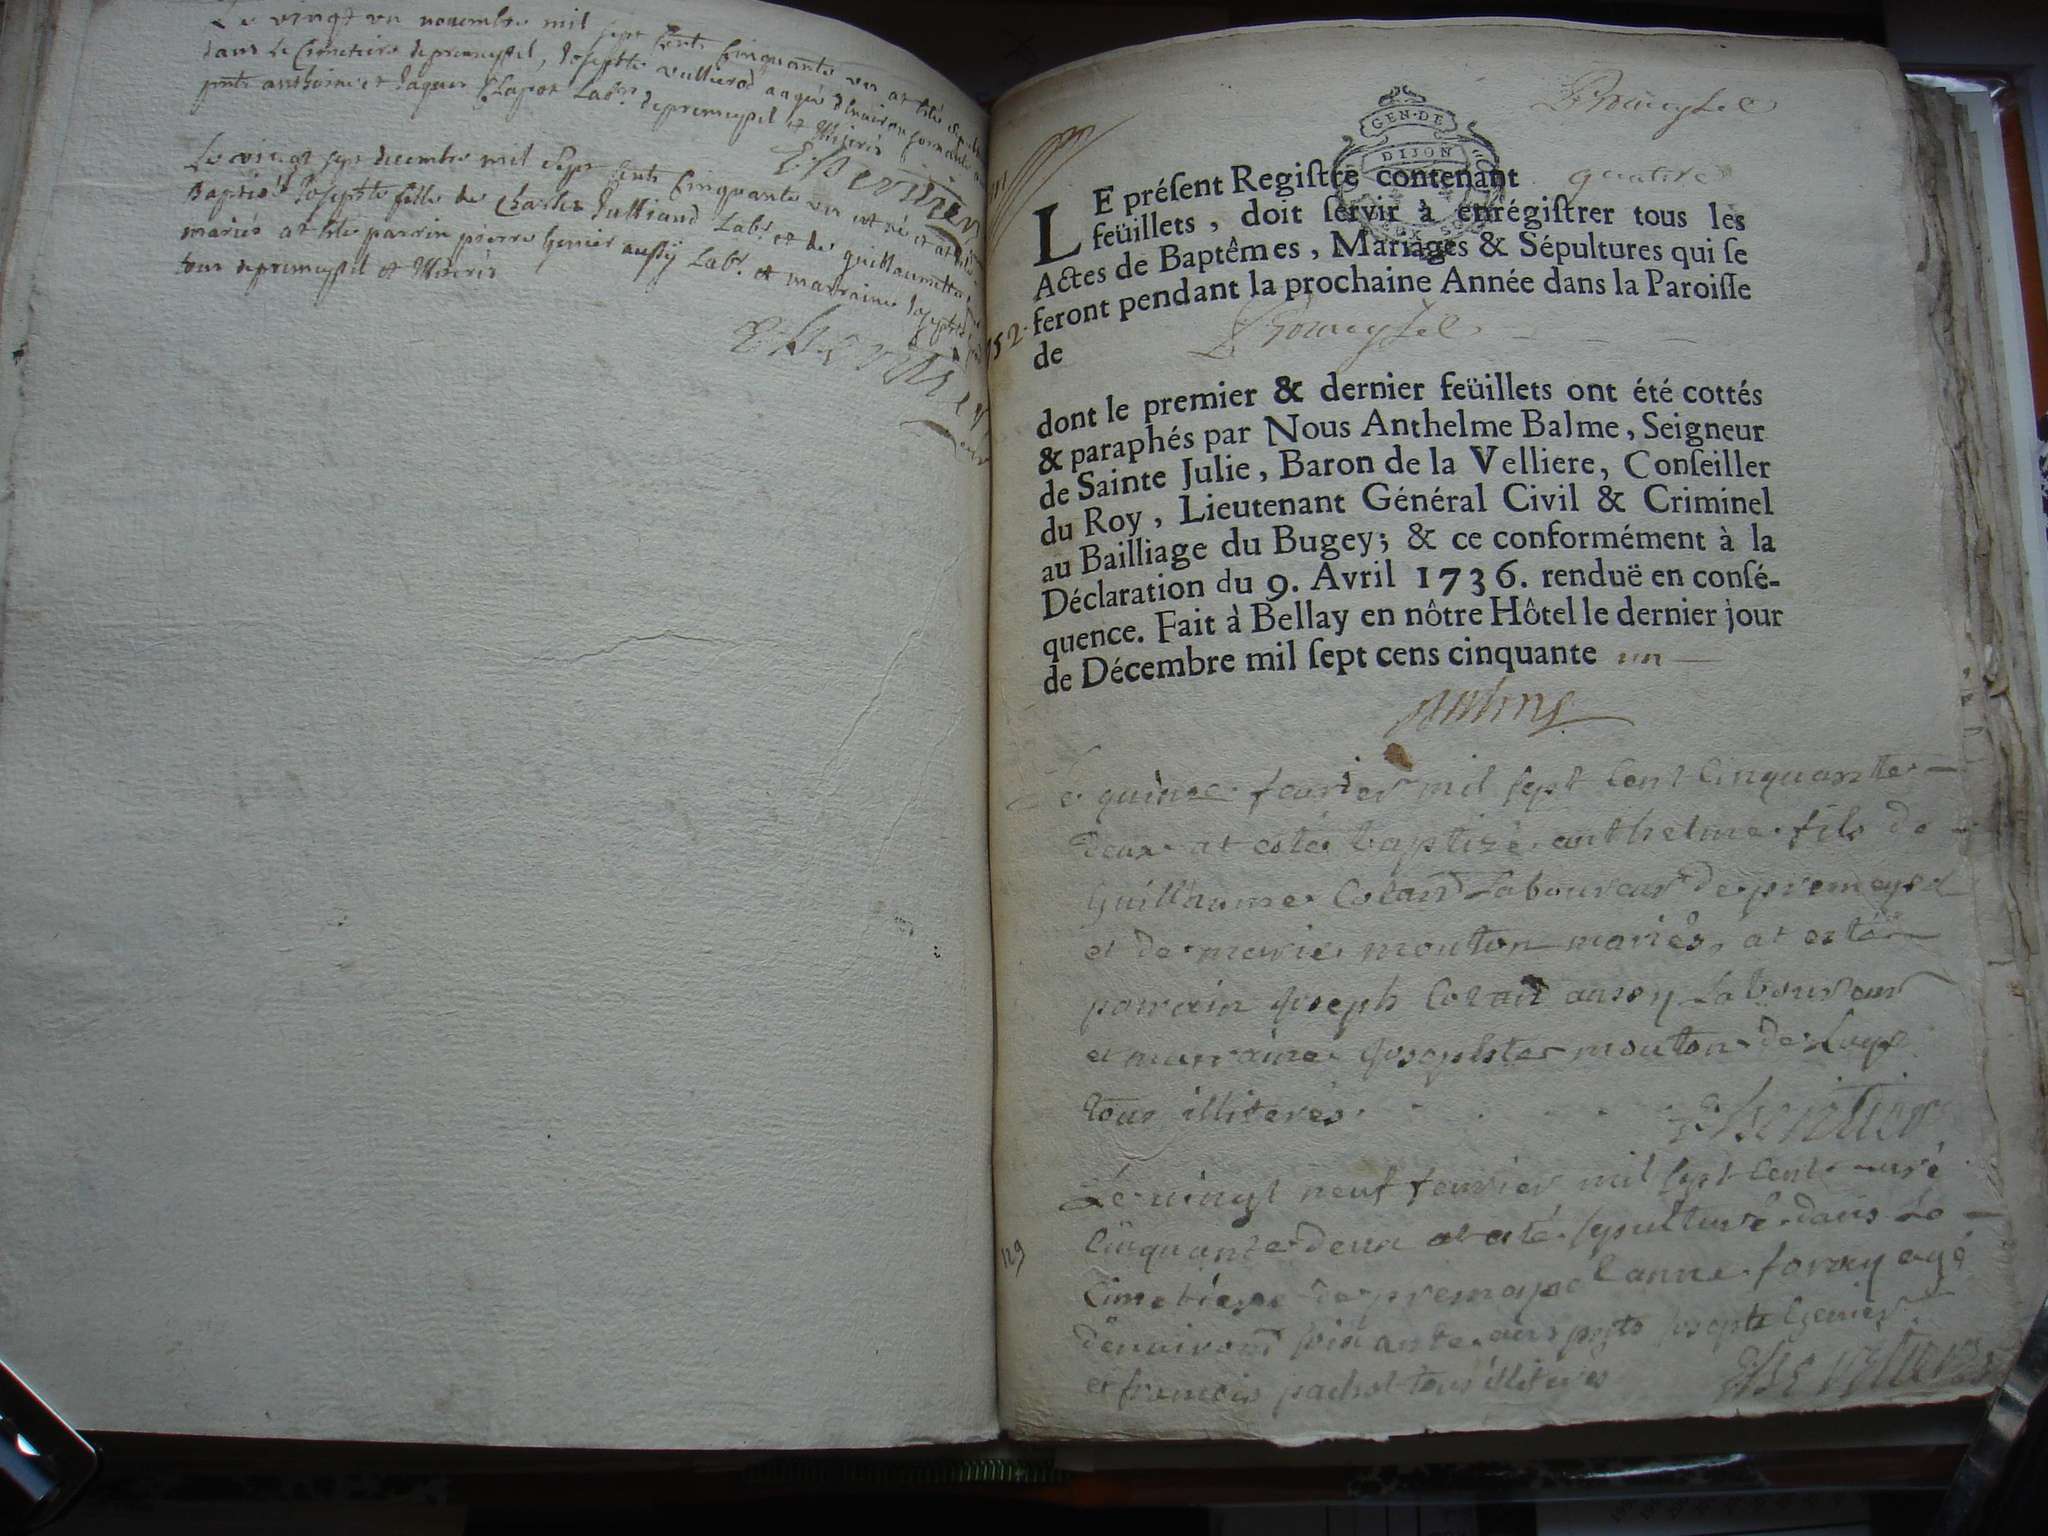 Le vingt un novembre mil sept cents cinquante un at hété
dans le Cimetiere de premeyssel, Josephte vullierod aagée d'huiron
pnts anthoine et Jaques Labrs de premeyssel et illiterés
Le vingt sept decembre mil Sept cents Cinquante un est né et at hété
Baptisé Josephte fille de Charles Julliand Labr. et de guillaumette
mariés at hété parrin pierre Genier aussy Labr. et marraine Josephte
tous de premeyssel et illiterés
Premeysel
GEN·DE
DIJON
LE présent Registre contenant quatre
feüillets, doit servir à enrégistrer tous les
Actes de Baptêmes, Mariages & Sépultures qui se
feront pendant la prochaine Année dans la Paroisse
de Premeysel
dont le premier & dernier feüillets ont été cottés
& paraphés par Nous Anthelme Balme, Seigneur
de Sainte Julie, Baron de la Velliere, Conseiller
du Roy, Lieutenant Général Civil & Criminel
au Bailliage du Bugey; & ce conformément à la
Déclaration du 9. Avril 1736. renduë en consé-
quence. Fait à Bellay en nôtre Hôtel le dernier jour
de Décembre mil sept cens cinquante un
Balme
Le quinze feurier mil sept Cent Cinquante
deux at esté baptizé anthelme fils de
Guillaume Coland Laboureur de premeysel
et de marie mouton mariés, at esté
parrain Joseph Coland aussy Laboureur
et marraine Josephte mouton de Luys
tous illiterés.
Le vingt neuf feurier mil sept Cent
Cinquante deux at esté sepulturé dans Le
Cimetiere de premeysel anne forray agé
denuiront soixante ans pnts Joseph Genier
et francois pachot tous illiterés
129